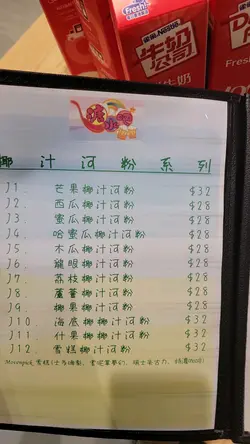 Fresh!
雀巢 Nestlé
牛奶公司
椰汁河粉系列
J1. 芒果椰汁河粉 $32
J2. 西瓜椰汁河粉 $28
J3. 蜜瓜椰汁河粉 $28
J4. 哈蜜瓜椰汁河粉 $28
J5. 木瓜椰汁河粉 $28
J6. 龍眼椰汁河粉 $28
J7. 荔枝椰汁河粉 $28
J8. 蘆薈椰汁河粉 $28
J9. 椰果椰汁河粉 $28
J10. 海底椰椰汁河粉 $32
J11. 什果椰汁河粉 $32
J12. 雪糕椰汁河粉 $32